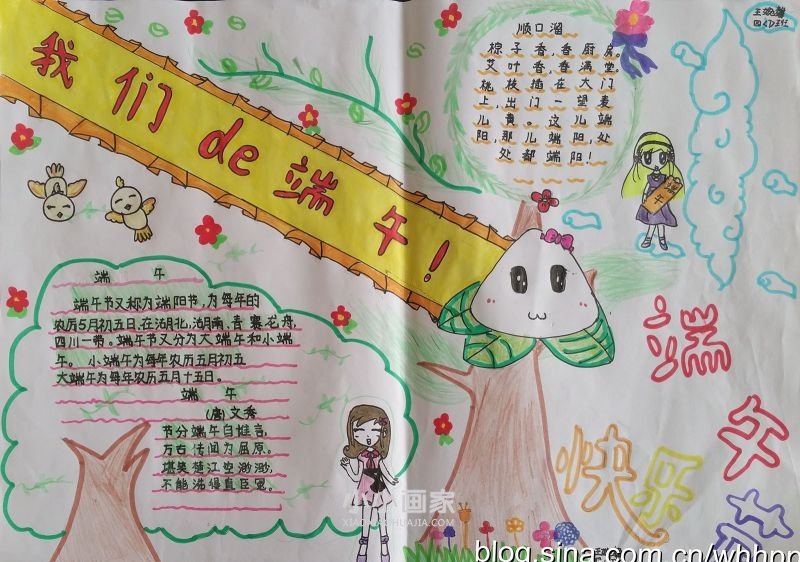 我们de端午!
顺口溜
粽子香,香厨房。
艾叶香,香满堂
桃枝插在大门
上,出门一望麦
儿黄。这儿端
阳,那儿端阳,处
处都端阳!
四(7)班
端午
端午
端午节又称为端阳节,为每年的
农历5月初五日,在湖北,湖南,青寨龙舟,
四川一带。端午节又分为大端午和小端
午。小端午为每年农历五月初五
大端午为每年农历五月十五日。
端午
(唐)文秀
节分端午自谁言,
万古传闻为屈原。
堪笑楚江空渺渺,
不能洗得直臣冤。
端午节
快乐
小小画家
XIAOXIAOHUAJIA.COM
blog.sina.com.cn/whhpp